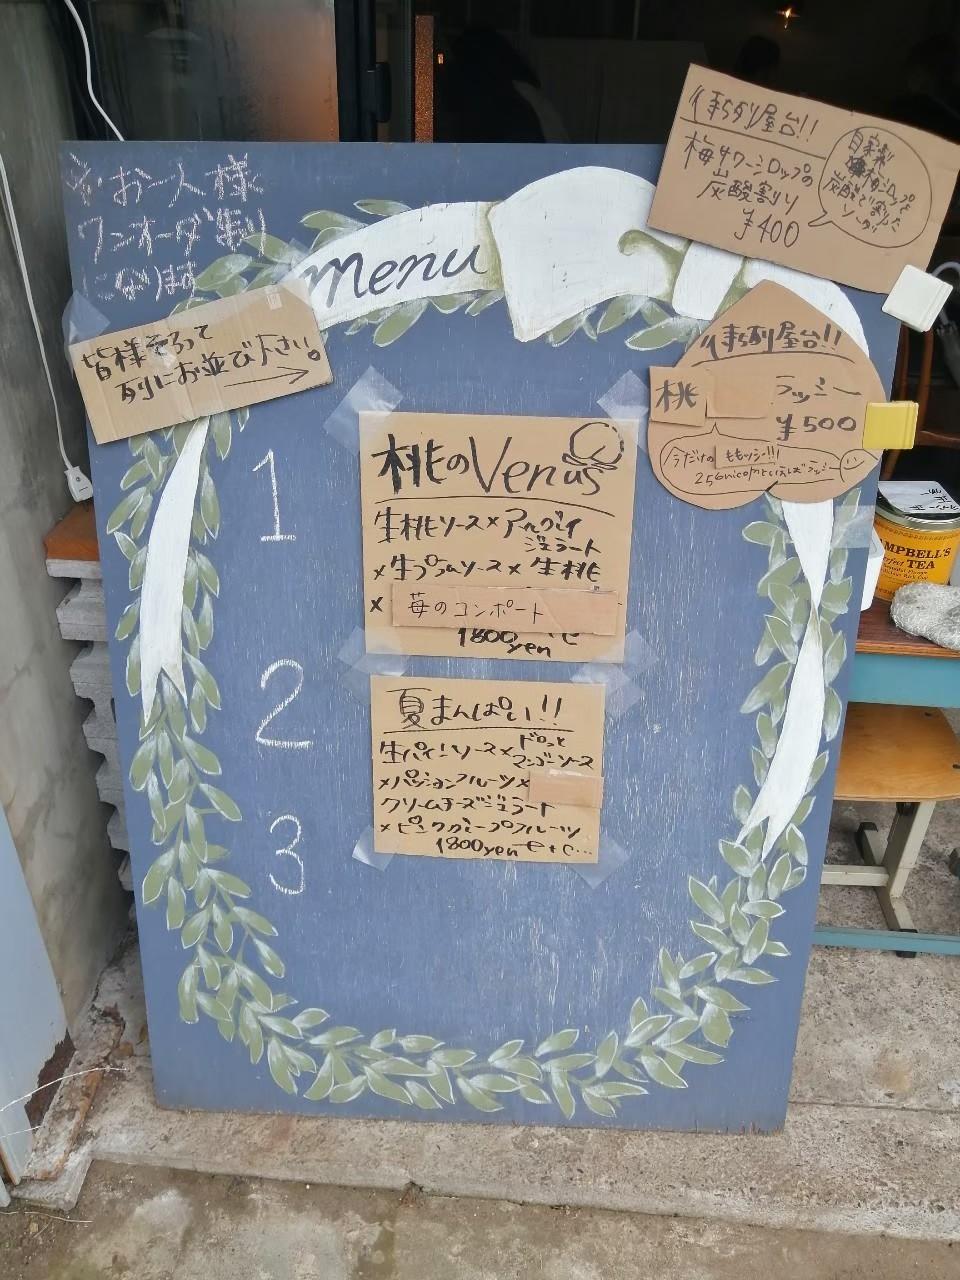 ※お一人様
ワンオーダー制
になります
Menu
皆様そろって
列にお並び下さい。
行列屋台!!
梅サワーシロップの
炭酸割り
¥400
自家製
梅シロップを
炭酸で割った
ソーダ
行列屋台!!
桃 ラッシー
¥500
今だけの ももッシー!!!
1
桃のVenus
生桃ソース×アールグレイ
ジェラート
×生プラムソース×生桃
× 苺のコンポート
1800yen
2
夏まんぱい!!
生パインソース×ドロッと
マンゴーソース
×パッションフルーツ×
クリームチーズジェラート
×ピンクグレープフルーツ
1800yen etc...
3
CAMPBELL'S
Perfect TEA